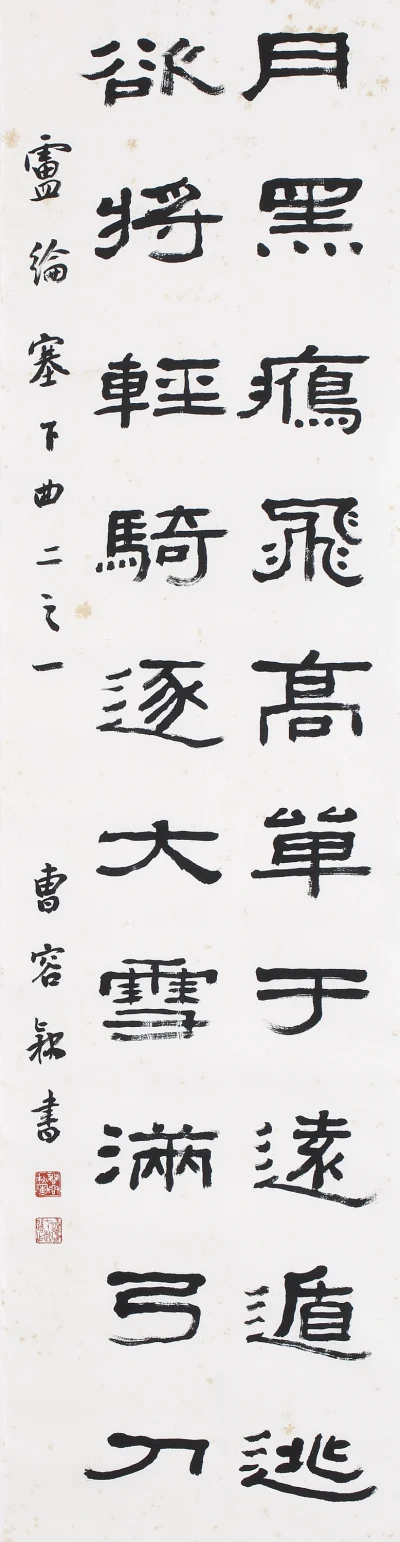 月黑鴈飛高單于遠遁逃
欲將輕騎逐大雪滿弓刀
盧綸塞下曲二之一 曹容書